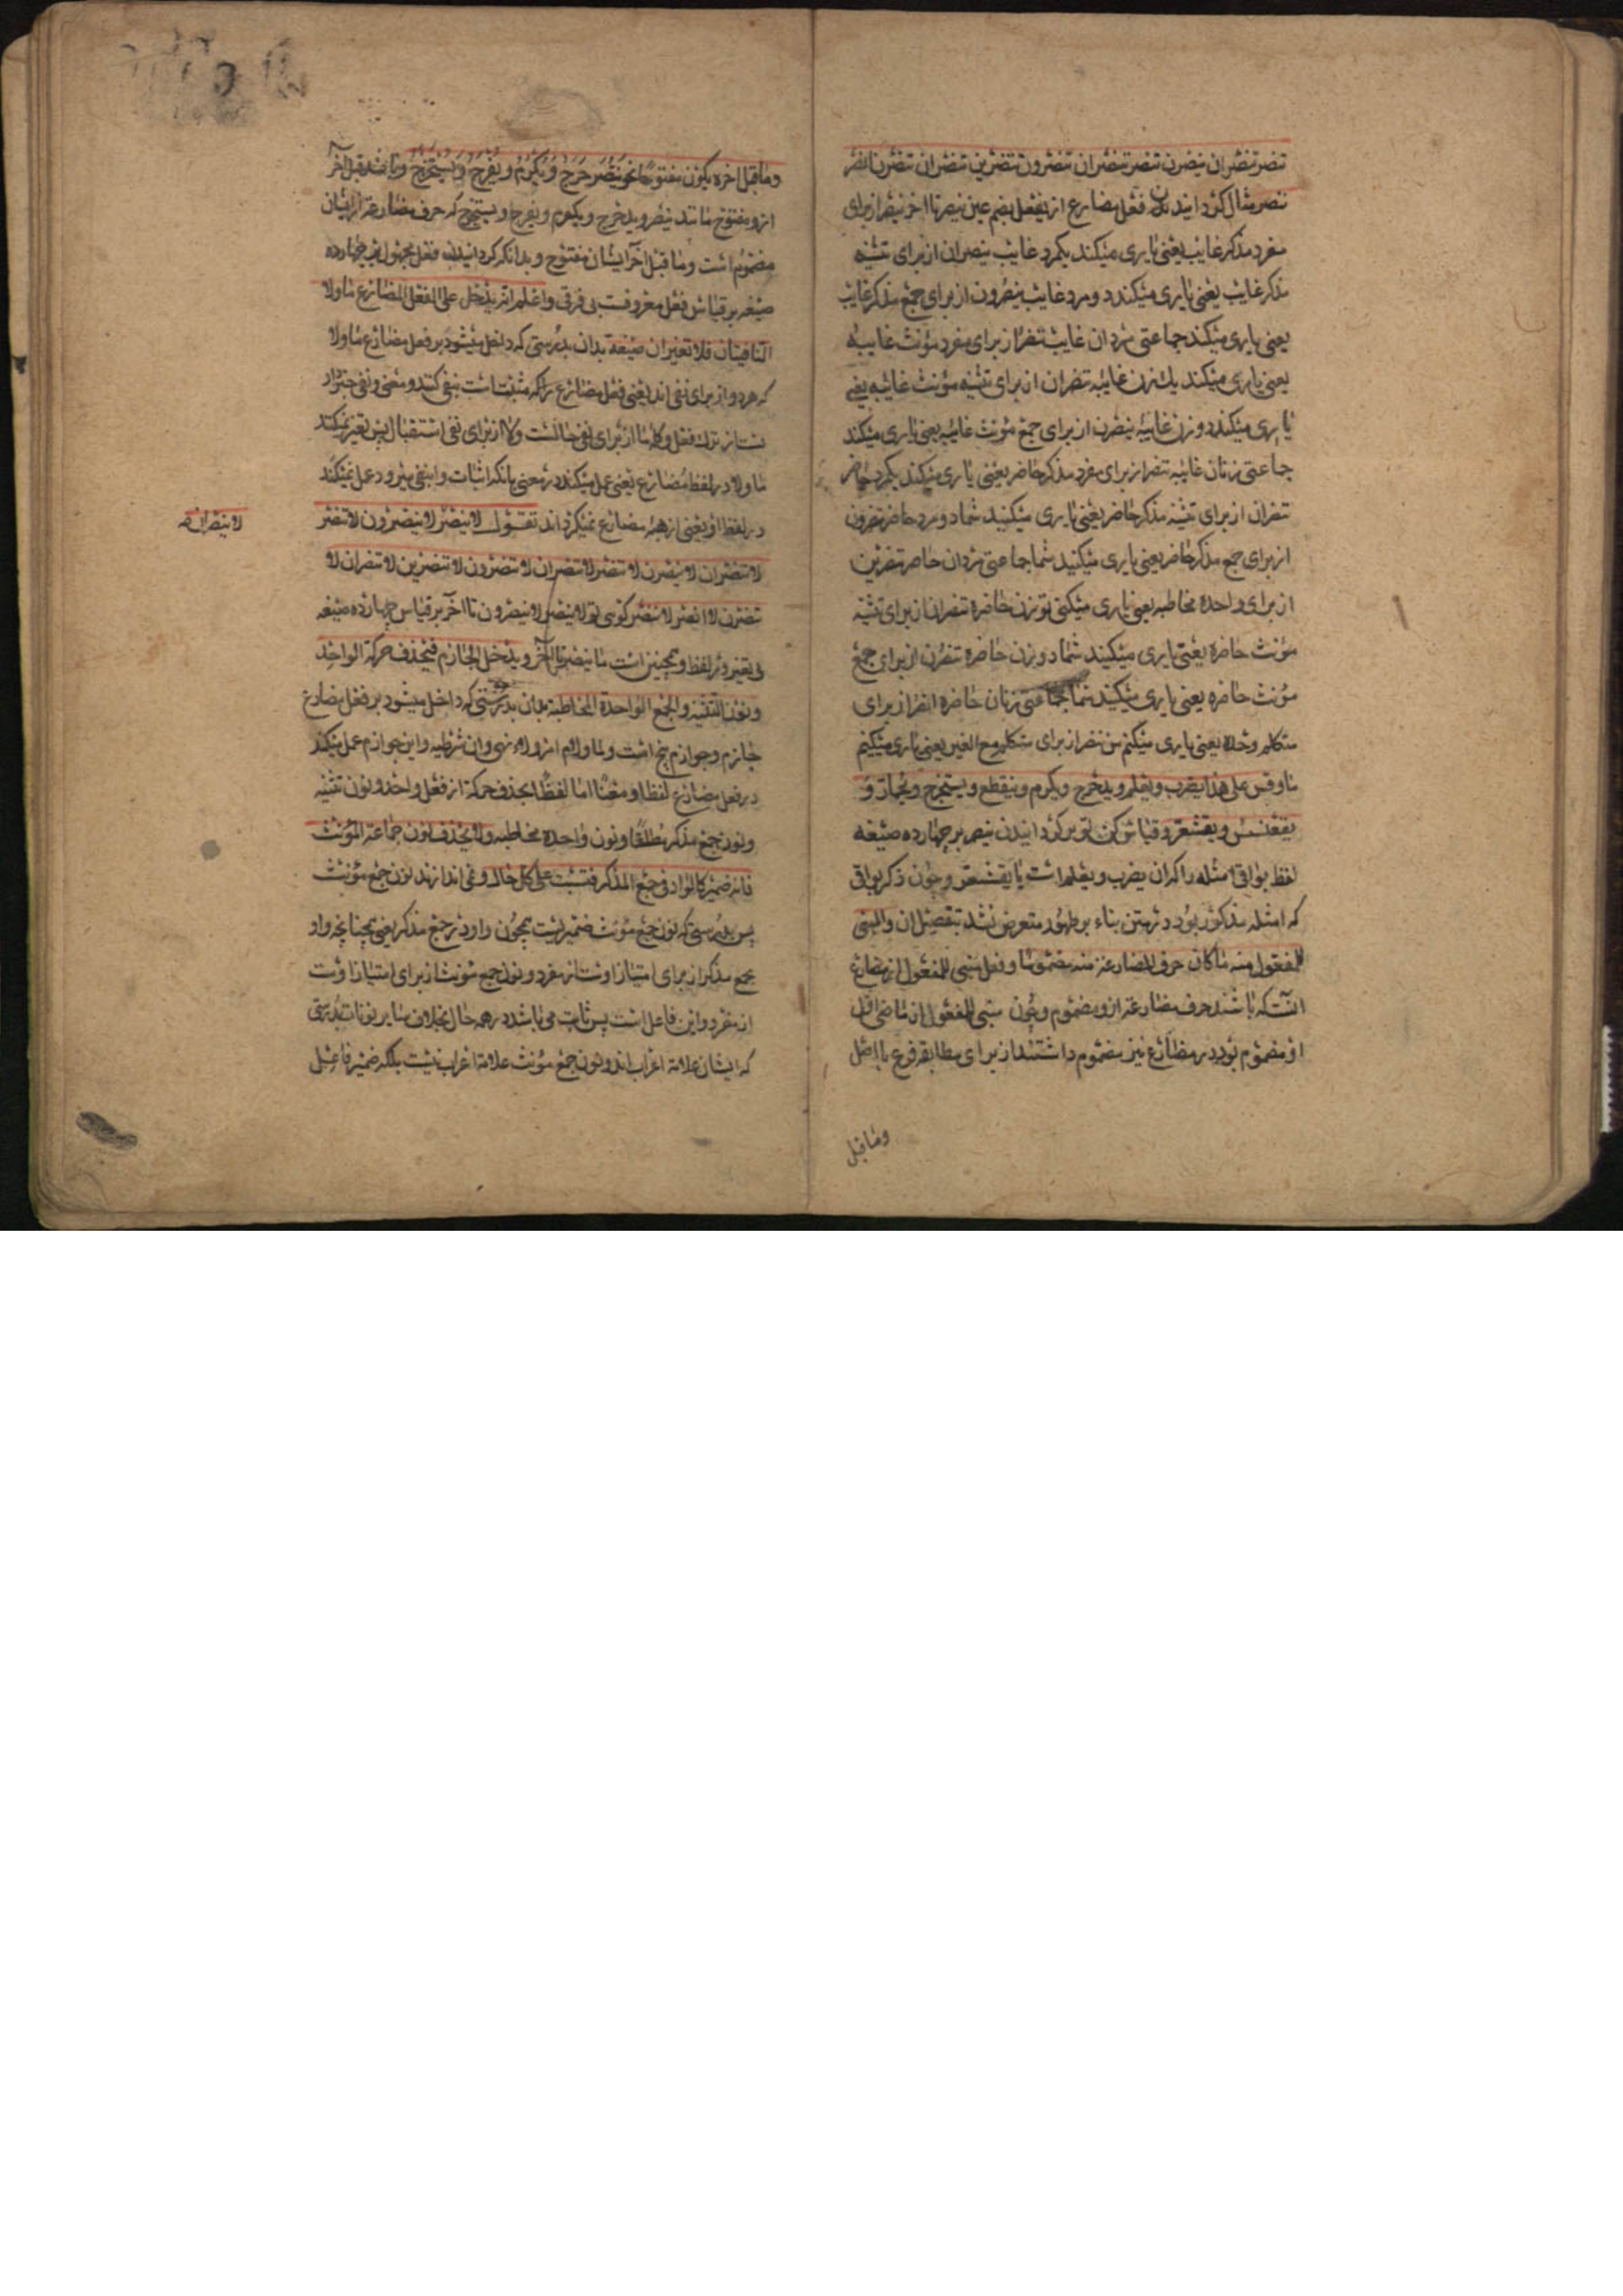 تنصر تنصران ینصرن تنصر تنصران تنصرون تنصرین تنصران تنصرن انصر
ننصر مثال کردانیدن فعل مضارع از یفعل بضم عین ینصر تا اخر ینصر از برای
مفرد مذکر غایب یعنی یاری میکند یکمرد غایب ینصران از برای تثنیه
مذکر غایب یعنی یاری میکنند دو مرد غایب ینصرون از برای جمع مذکر غایب
یعنی یاری میکنند جماعتی مردان غایب تنصر از برای مفرد مؤنث غایبه
یعنی یاری میکند یك زن غایبه تنصران از برای تثنیه مؤنث غایبه یعنی
یاری میکنند دو زن غایبه ینصرن از برای جمع مؤنث غایبه یعنی یاری میکنند
جماعتی زنان غایبه تنصر از برای مفرد مذکر حاضر یعنی یاری میکند یکمرد حاضر
تنصران از برای تثنیه مذکر حاضر یعنی یاری میکنید شما دو مرد حاضر تنصرون
از برای جمع مذکر حاضر یعنی یاری میکنید شما جماعتی مردان حاضر تنصرین
از برای واحده مخاطبه یعنی یاری میکنی تو زن حاضره تنصران از برای تثنیه
مؤنث حاضره یعنی یاری میکنید شما دو زن حاضره تنصرن از برای جمع
مؤنث حاضره یعنی یاری میکنید شما جماعتی زنان حاضره انصر از برای
متکلم وحده یعنی یاری میکنم من ننصر از برای متکلم مع الغیر یعنی یاری میکنیم
ما وقس علی هذا یضرب ویعلم ویدحرج ویکرم وینقطع ویستخرج ویحمار و
یقعنسس ویقشعر وقیاس کن تو بر کردانیدن ینصر بر چهارده صیغه
لفظ بواقی امثله را که ان یضرب ویعلم است تا یقشعر وچون ذکر بواقی
که امثله مذکور بود در متن بناء بر ظهور متعرض نشد بتفصیل ان والمبنی
للمفعول منه ما کان حرف المضارعة منه مضموما وفعل مبنی للمفعول از مضارع
انست که باشد حرف مضارعة ازو مضموم وچون مبنی للمفعول از ماضی اول
او مضموم بود در مضارع نیز مضموم داشتند از برای مطابقه فرع با اصل
وما قبل
وما قبل اخره یکون مفتوحا نحو ینصر ویدحرج ویکرم ویفرح ویستخرج وما باشد ما قبل آخر
ازو مفتوح مانند ینصر ویدحرج ویکرم ویفرح ویستخرج که حرف مضارعة از ایشان
مضموم است وما قبل آخر ایشان مفتوح وبدانکه کردانیدن فعل مجهول نیز چهارده
صیغه بر قیاس فعل معروفست بی فرقی واعلم انه یدخل علی الفعل المضارع ما ولا
النافیتان فلا تغیران صیغة بدان بدرستی که داخل میشود بر فعل مضارع ما ولا
که هر دو از برای نفی اند یعنی فعل مضارع را که مثبت است نفی کنند ومعنی نفی خبر دا
ست از ترك فعل وکلمه ما از برای نفی حالست ولا از برای نفی استقبال پس تغیر نمیکند
ما ولا در لفظ مضارع یعنی عمل نمیکنند در معنی بانکه اثبات را نفی میرود عمل نمیکند
در لفظ او یعنی از هیئه مضارع نمیکرداند تقول لا ینصر لا ینصرون لا تنصر
لا ینصران صح
لا تنصران لا ینصرن لا تنصر لا تنصران لا تنصرون لا تنصرین لا تنصران لا
تنصرن لا انصر لا ننصر کوئی تو لا ینصر لا ینصرون تا آخر بر قیاس چهارده صیغه
بی تغییر در لفظ وهمچنین است ما ینصر تا آخر ویدخل الجازم فیحذف حرکة الواحد
ونون التثنیه والجمع والواحدة المخاطبة بدان بدرستی که داخل میشود بر فعل مضارع
جازم وجوازم پنج است لم ولما ولام امر ولاء نهی وان شرطیه واین جوازم عمل میکند
در فعل مضارع لفظا ومعنا اما لفظا بحذف حرکة از فعل واحد ونون تثنیه
ونون جمع مذکر مطلقا ونون واحده مخاطبه ولا یحذف نون جماعة المؤنث
فانه ضمیر کالواو فی جمع المذکر فتثبت علی کل حال ونمی اندازند نون جمع مؤنث
پس بدرستی که نون جمع مؤنث ضمیر است همچون واو در جمع مذکر یعنی همچنانچه واو
جمع مذکر از برای امتیاز اوست از مفرد ونون جمع مؤنث از برای امتیاز اوست
از مفرد واین فاعل است پس ثابت می باشد در همه حال بخلاف سایر نونات بدرستی
که ایشان علامة اعراب اند ونون جمع مؤنث علامة اعراب نیست بلکه ضمیر فاعل